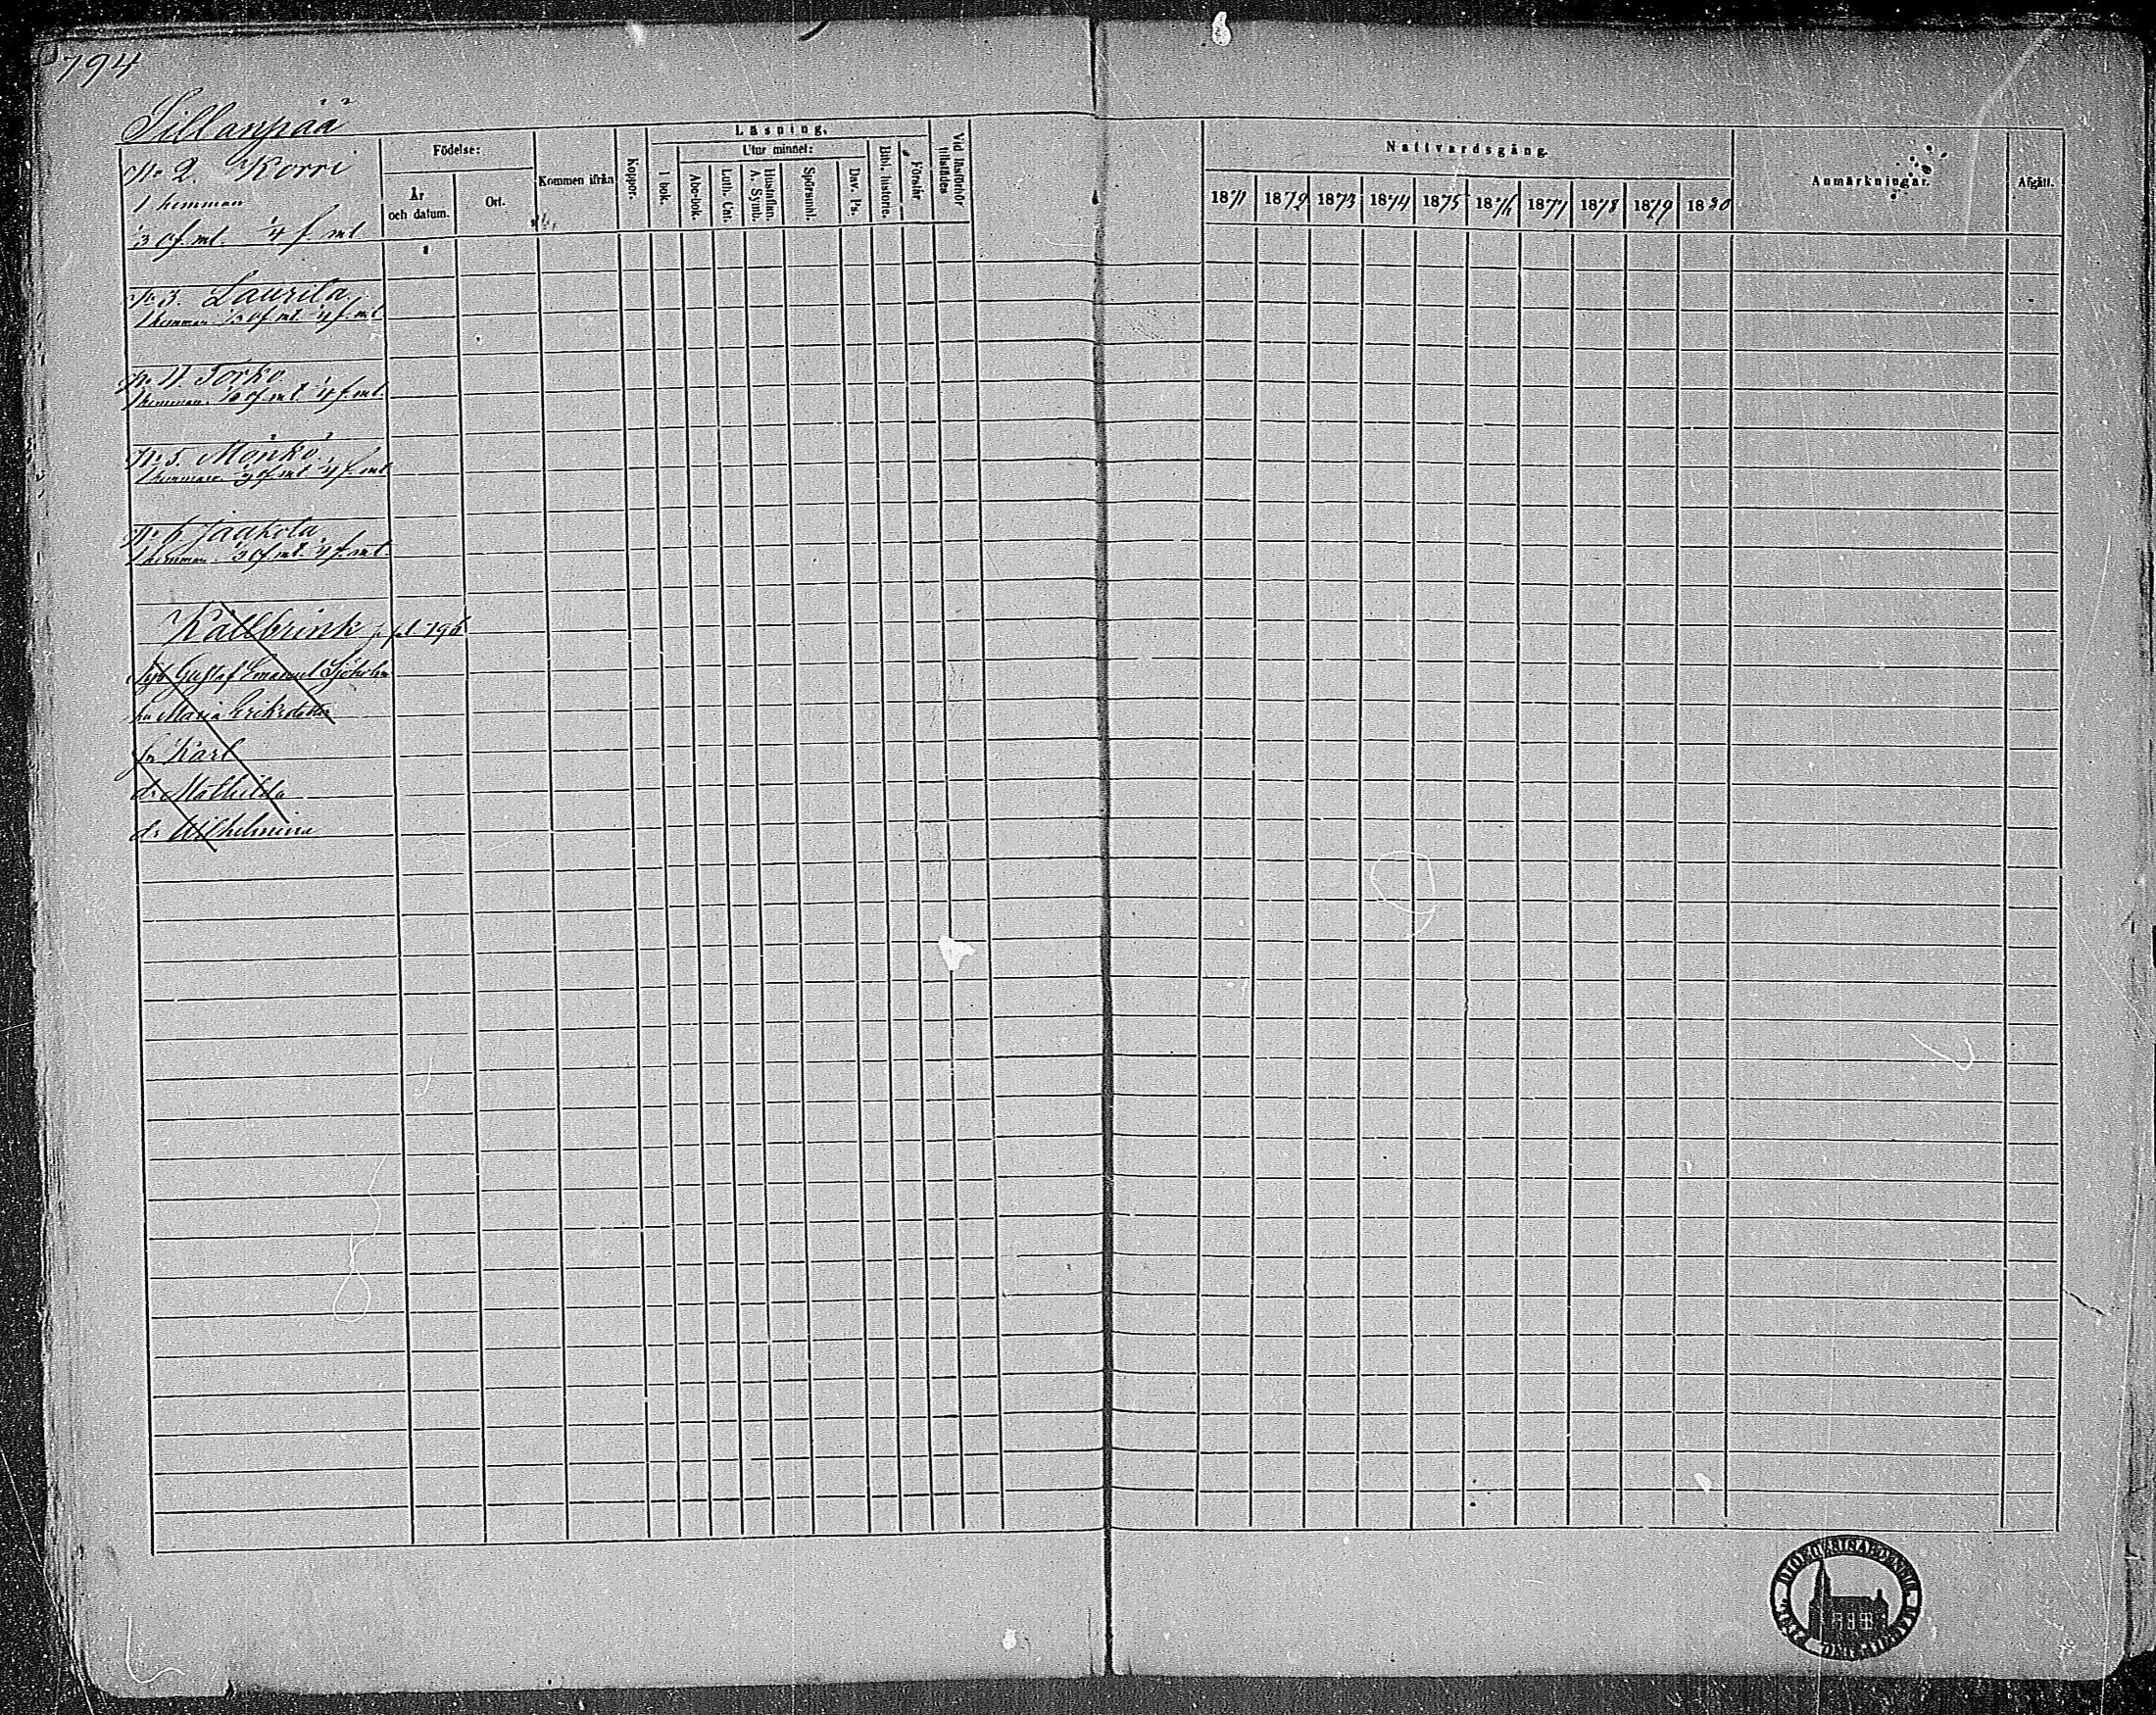 794
Sillanpää
No 2. Korri
1 hemman
1/3 Of. mt. 1/4 f. mt
No 3. Laurila.
1 hemman 1/3 Of. mt. 1/4 f. mt
No 4 Torko
1 hemman. 1/3 Of. mt. 1/4 f. mt.
No 5. Mönkö.
1 hemman. 1/3 Of. mt 1/4 f. mt
No 6 Jaakola
1 hemman. 1/3 Of. mt. 1/4 f. mt.
Källbrink 796
Gustaf Emanuel Sjöholm
hu Maria Eriksdotter
sn Karl
dr Mathilda
dr Wilhelmina
Födelse:
År och datum.
Ort.
Kommen ifrån
Koppor.
Läsning.
I bok.
Utur minnet:
Abcbok.
Luth. Cat.
Hustaflan. A. Symb.
Spörsmål.
Dav. Ps.
Bibl. historie.
Förstår
Vid läsförhör tillstädes
Nattvardsgång.
1871 1872 1873 1874 1875 1876 1877 1878 1879 1880
Anmärkningar.
Afgått.